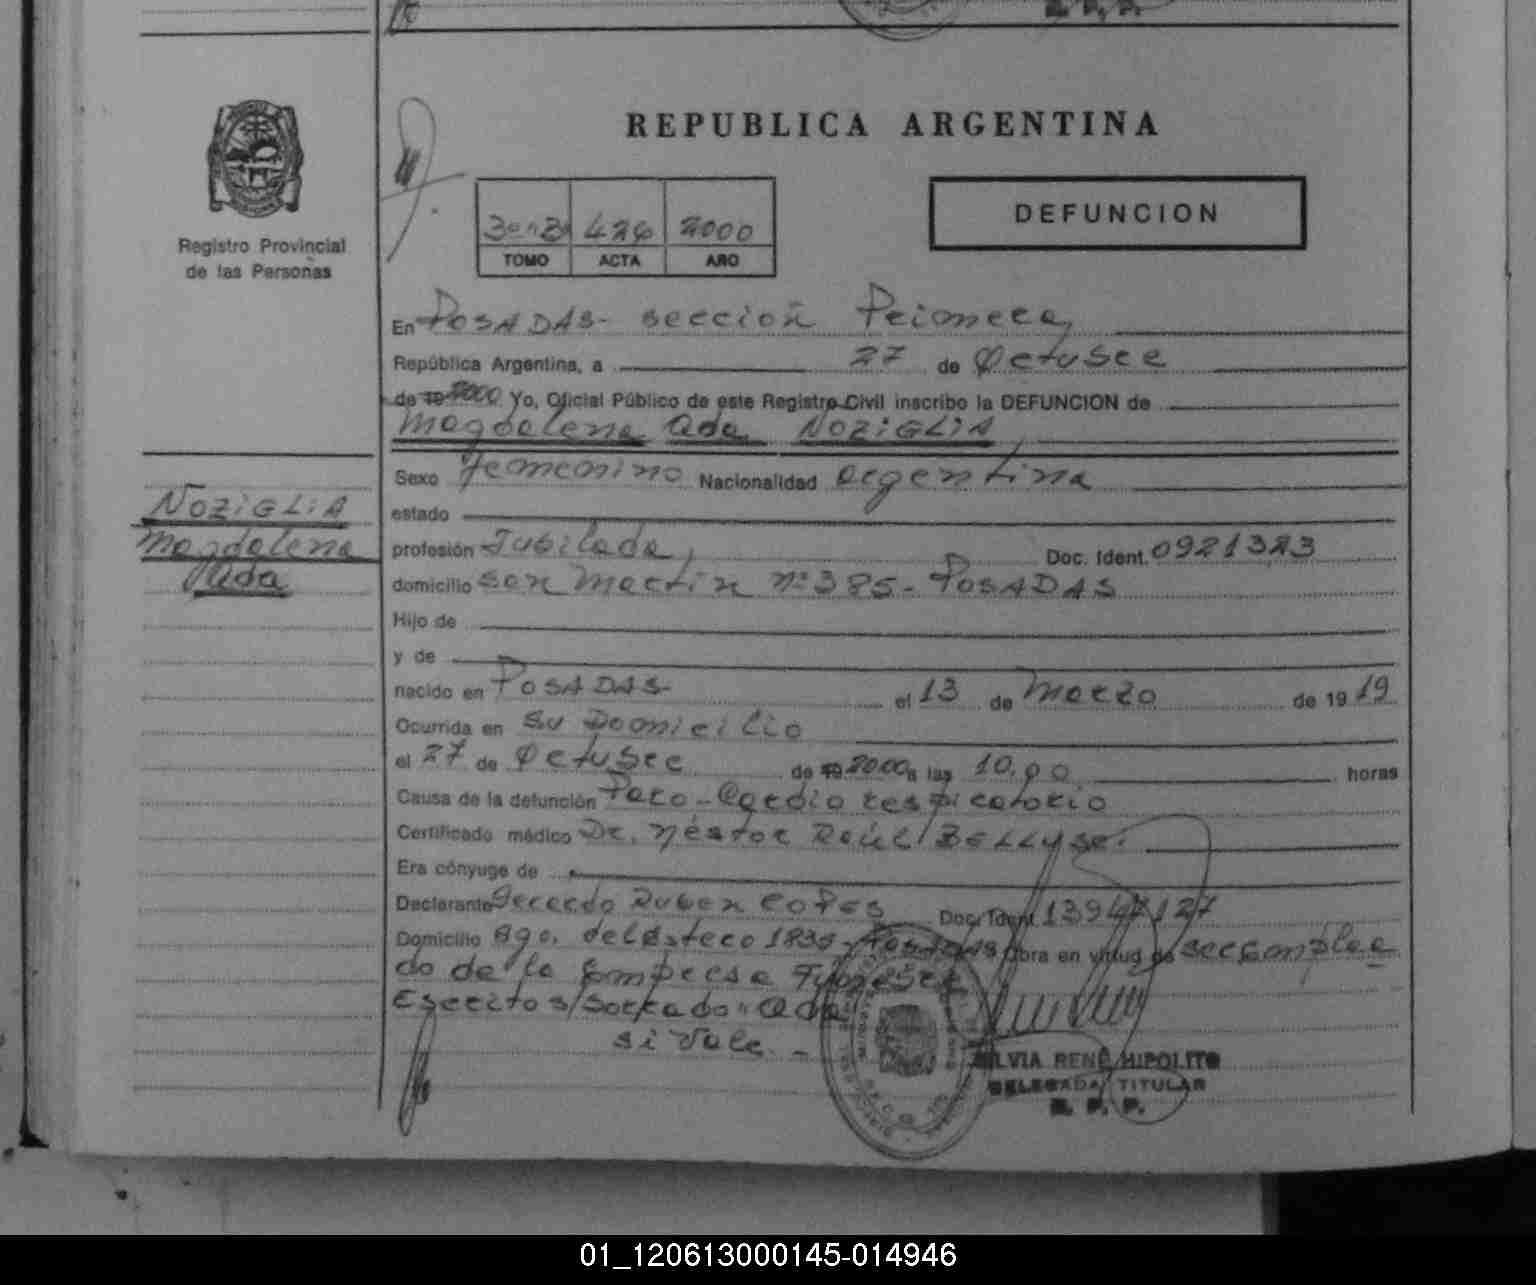 REPUBLICA ARGENTINA
DEFUNCION
Registro Provincial
de las Personas
424 2000
TOMO ACTA AÑO
En POSADAS- sección Primera,
República Argentina, a 27 de Octubre
de 19 2000 Yo, Oficial Público de este Registro Civil inscribo la DEFUNCION de
Magdalena Ada NOZIGLIA
NOZIGLIA
Magdalena
Ada
Sexo femenino Nacionalidad argentina
estado
profesión Jubilada, Doc. Ident. 0921323
domicilio San Martín Nº 385- POSADAS
Hijo de
y de
nacido en POSADAS- el 13 de Marzo de 19 19
Ocurrida en su Domicilio
el 27 de Octubre de 19 2000 a las 10,00 horas
Causa de la defunción Paro-Cardio respiratorio
Certificado médico Dr. Néstor Raúl
Era cónyuge de
Declarante Gerardo Ruben COPES Doc. Ident 13947127
Domicilio Sgo. del Estero 1835- Posadas Obra en virtud de ser emplea
do de la Empresa
Escritos/Borrado "Ada
si Vale. -
SILVIA RENÉ HIPOLITO
DELEGADA TITULAR
R. P. P.
01_120613000145-014946